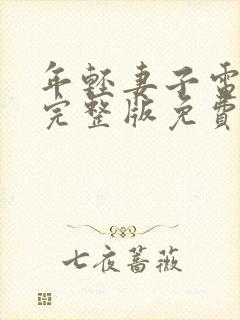 年輕妻子電
完整版免費
七夜蔷薇